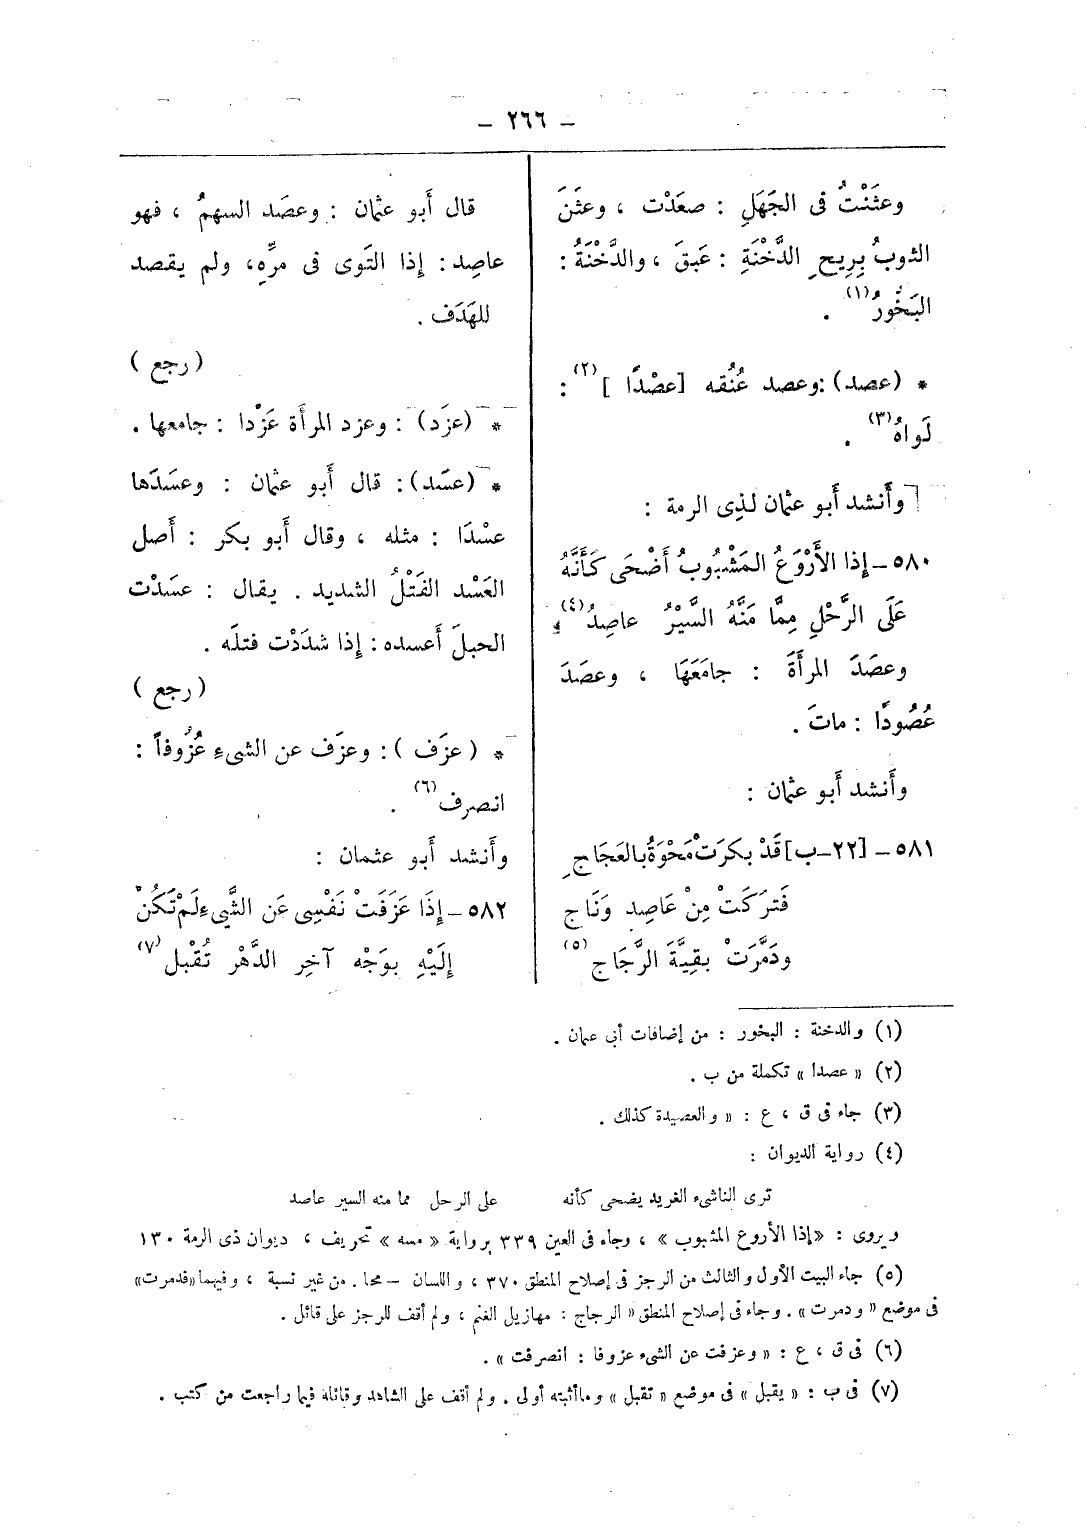 – ٢٦٦ –
وعثَنْتُ فى الجَهَلِ : صعَدْت ، وعثَنَ
الثوبُ بِرِيح الدَّخْنَةِ : عَبقَ ، والدَّخْنَةُ :
البَخُورُ(١) .
* (عصد) : وعصد عُنُقه [عصْدًا ](٢) :
لَواهُ(٣) .
وأَنشد أَبو عثمان لذِى الرمة :
٥٨٠ – إذا الأَرْوَعُ المَشْبُوبُ أَضْحَى كَأَنَّهُ
عَلَى الرَّحْلِ مِمَّا مَنَّهُ السَّيْرُ عاصِدُ(٤)
وعصَدَ المرأَةَ : جامَعَهَا ، وعصَدَ
عُصُودًا : ماتَ .
وأَنشد أَبو عثمان :
٥٨١ – [٢٢–ب] قَدْ بكرَتْ مَحْوَةُ بالعَجَاجِ
فَترَكَتْ مِنْ عَاصِدٍ وَنَاجِ
ودَمَّرَتْ بقيَّةَ الرَّجَاجِ(٥)
قال أَبو عثمان : وعصَد السهمُ ، فهو
عاصِد : إذا التَوى فى مرِّهِ، ولم يقصد
للهَدَف .
( رجع )
* (عزَد) : وعزد المرأَة عَزْدا : جامعها .
* (عسَد) : قال أَبو عثمان : وعسَدَها
عسْدًا : مثله ، وقال أَبو بكر : أَصل
العَسْد الفَتْلُ الشديد . يقال : عسَدْت
الحبلَ أعسده : إذا شدَدْت فتلَه .
( رجع )
* ( عزَف ) : وعزَف عن الشىءِ عُزُوفاً :
انصرف(٦) .
وأَنشد أَبو عثمان :
٥٨٢ – إذَا عَزَفَتْ نَفْسِى عَنِ الشَّىءِ لَمْ تَكُنْ
إلَيْهِ بوَجْه آخِر الدَّهْر تُقْبل(٧)
(١) والدخنة : البخور : من إضافات أبى عثمان .
(٢) « عصدا » تكملة من ب .
(٣) جاء فى ق ، ع : « والعصيدة كذلك .
(٤) رواية الديوان :
ترى الناشىء الغريد يضحى كأنه على الرحل مما منه السير عاصد
ويروى : «إذا الأروع المشبوب» ، وجاء فى العين ٣٣٩ برواية « مسه » تحريف ، ديوان ذى الرمة ١٣٠
(٥) جاء البيت الأول والثالث من الرجز فى إصلاح المنطق ٣٧٠ ، واللسان – محا . من غير نسبة ، وفيهما «فدمرت»
فى موضع « ودمرت » . وجاء فى إصلاح المنطق « الرجاج : مهازيل الغنم ، ولم أقف للرجز على قائل .
(٦) فى ق ، ع : « وعزفت عن الشىء عزوفا : انصرفت » .
(٧) فى ب : « يقبل » فى موضع « تقبل » وما أثبته أولى . ولم أقف على الشاهد وقائله فيما راجعت من كتب .